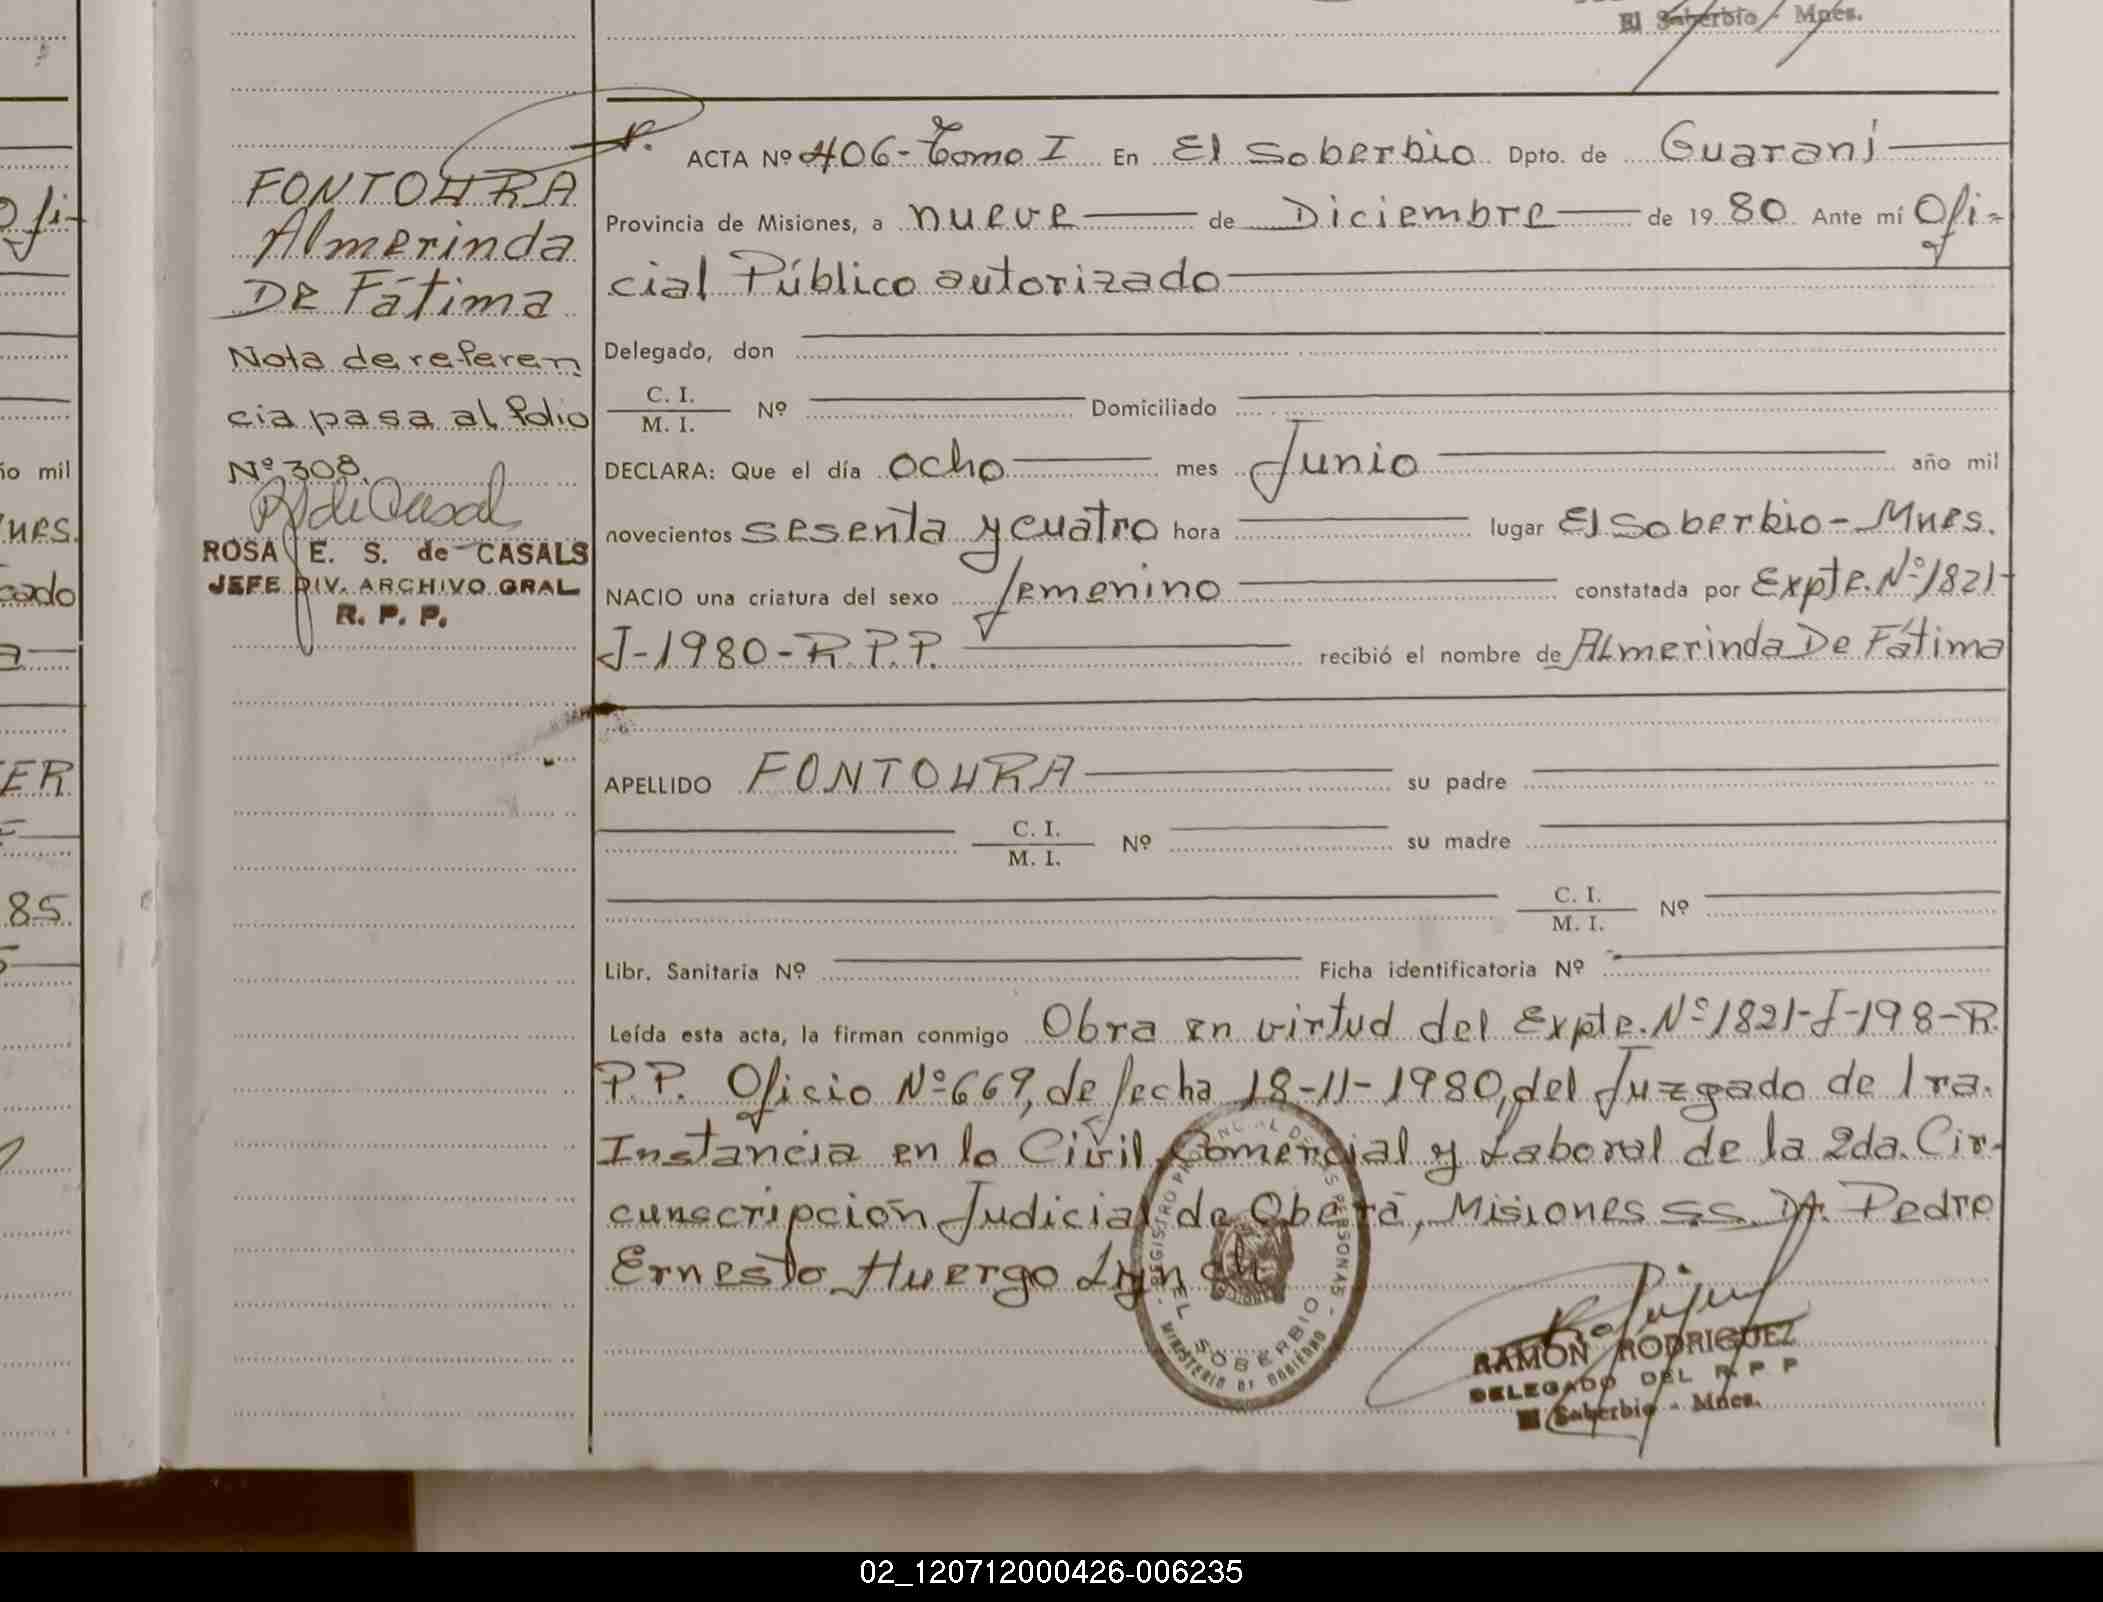 El Soberbio - Mnes.
FONTOURA
Almerinda
DE Fátima
Nota de referen
cia pasa al folio
Nº 308.
ROSA E. S. de CASALS
JEFE DIV. ARCHIVO GRAL
R. P. P.
ACTA Nº 406- Tomo I En El Soberbio Dpto. de Guaraní
Provincia de Misiones, a nueve de Diciembre de 1980 Ante mí Ofi-
cial Público autorizado
Delegado, don
C. I.
M. I. Nº Domiciliado
DECLARA: Que el día ocho mes Junio año mil
novecientos sesenta y cuatro hora lugar El Soberbio - Mnes.
NACIO una criatura del sexo femenino constatada por Expte. Nº 1821-
J-1980-R.P.P. recibió el nombre de Almerinda De Fátima
APELLIDO FONTOURA su padre
C. I.
M. I. Nº su madre
C. I.
M. I. Nº
Libr. Sanitaria Nº Ficha identificatoria Nº
Leída esta acta, la firman conmigo Obra en virtud del Expte. Nº 1821-J-198-R.
P.P. Oficio Nº 669, de fecha 18-11-1980, del Juzgado de 1ra.
Instancia en lo Civil, Comercial y Laboral de la 2da. Cir-
cunscripción Judicial de Oberá, Misiones S.S. Dr. Pedro
Ernesto Huergo Lynch
REGISTRO PROVINCIAL DE LAS PERSONAS
EL SOBERBIO
MINISTERIO DE GOBIERNO
RAMON RODRIGUEZ
DELEGADO DEL R P P
El Soberbio - Mnes.
Ofi-
ño mil
nes.
cado
a
ER
85
02_120712000426-006235